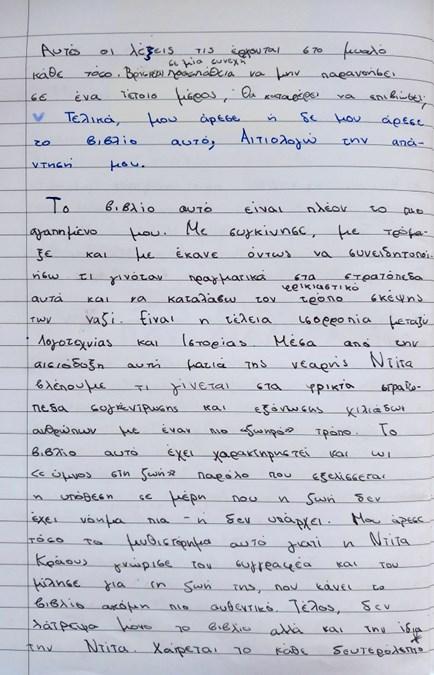 Αυτό οι λέξεις της έρχονται στο μυαλό
κάθε τόσο. Βρίσκεται σε μία συνεχή προσπάθεια να μην παρανοήσει
σε ένα τέτοιο μέρος, θα καταφέρει να επιβιώσει;
Τελικά, μου άρεσε ή δε μου άρεσε
το βιβλίο αυτό; Αιτιολογώ την απά-
ντησή μου.
Το βιβλίο αυτό είναι πλέον το πιο
αγαπημένο μου. Με συγκίνησε, με τρόμα-
ξε και με έκανε όντως να συνειδητοποι-
ήσω τι γινόταν πραγματικά στα στρατόπεδα
αυτά και να καταλάβω τον φρικιαστικό τρόπο σκέψης
των ναζί. Είναι η τέλεια ισορροπία μεταξύ
Λογοτεχνίας και Ιστορίας. Μέσα από την
αισιόδοξη αυτή ματιά της νεαρής Ντίτα
βλέπουμε τι γίνεται στα φρικτά στρατό-
πεδα συγκέντρωσης και εξόντωσης χιλιάδων
ανθρώπων με έναν πιο «ζωηρό» τρόπο. Το
βιβλίο αυτό έχει χαρακτηριστεί και ως
«ύμνος στη ζωή» παρόλο που εξελίσσεται
η υπόθεση σε μέρη που η ζωή δεν
έχει νόημα πια - ή δεν υπάρχει. Μου άρεσε
τόσο το μυθιστόρημα αυτό γιατί η Ντίτα
Κράους γνώρισε τον συγγραφέα και του
μίλησε για τη ζωή της, που κάνει το
βιβλίο ακόμη πιο αυθεντικό. Τέλος, δεν
λάτρεψα μόνο το βιβλίο αλλά και την ίδια
την Ντίτα. Χαίρεται το κάθε δευτερόλεπτο